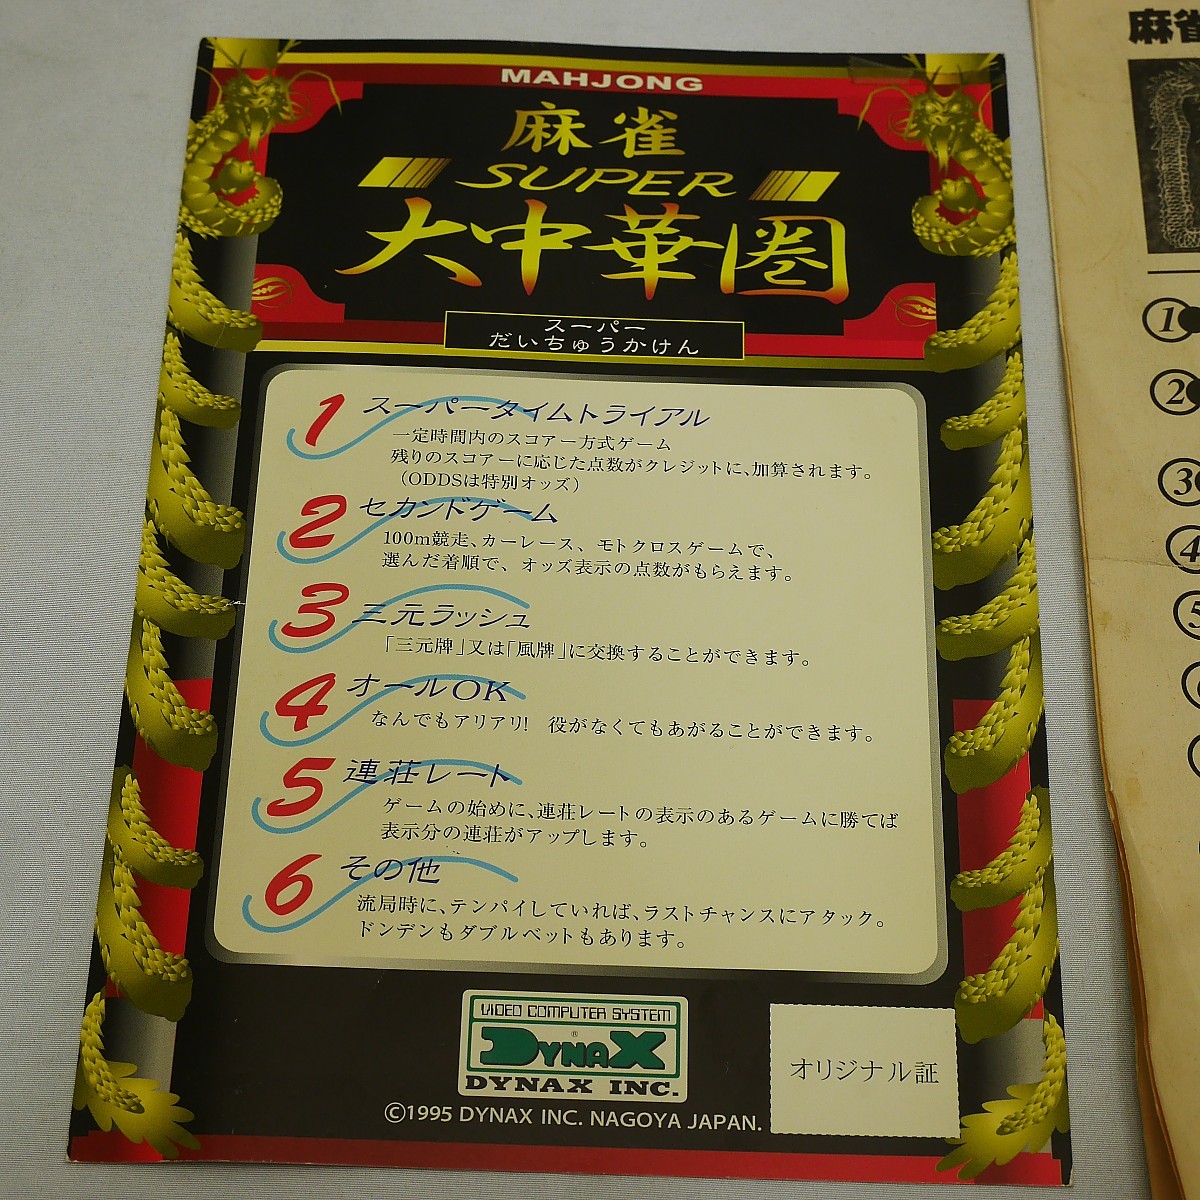 MAHJONG
麻雀
SUPER
大中華圏
スーパー
だいちゅうかけん
1 スーパータイムトライアル
一定時間内のスコアー方式ゲーム
残りのスコアーに応じた点数がクレジットに、加算されます。
（ODDSは特別オッズ）
2 セカンドゲーム
100m競走、カーレース、モトクロスゲームで、
選んだ着順で、オッズ表示の点数がもらえます。
3 三元ラッシュ
「三元牌」又は「風牌」に交換することができます。
4 オールOK
なんでもアリアリ! 役がなくてもあがることができます。
5 連荘レート
ゲームの始めに、連荘レートの表示のあるゲームに勝てば
表示分の連荘がアップします。
6 その他
流局時に、テンパイしていれば、ラストチャンスにアタック。
ドンデンもダブルベットもあります。
VIDEO COMPUTER SYSTEM
DYNAX®
DYNAX INC.
©1995 DYNAX INC. NAGOYA JAPAN.
オリジナル証
麻雀
①
②
③
④